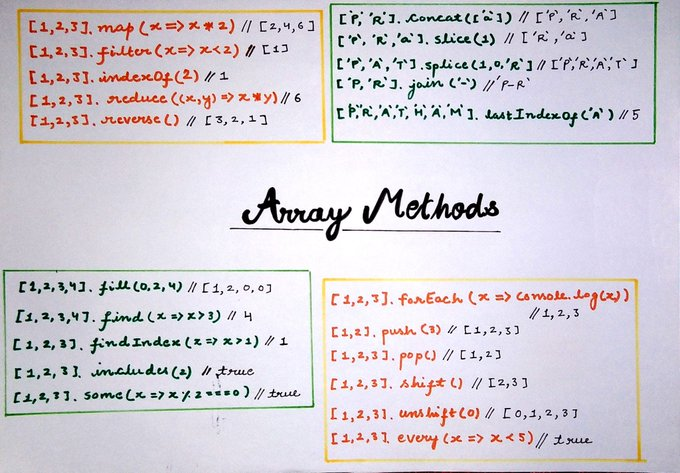 [1,2,3].map(x=>x*2) // [2,4,6]
[1,2,3].filter(x=>x<2) // [1]
[1,2,3].indexOf(2) // 1
[1,2,3].reduce((x,y)=>x*y) // 6
[1,2,3].reverse() // [3,2,1]
['P','R'].concat(['a']) // ['P','R','A']
['P','R','a'].slice(1) // ['R','a']
['P','A','T'].splice(1,0,'R') // ['P','R','A','T']
['P','R'].join('-') // 'P-R'
['P','R','A','T','H','A','M'].lastIndexOf('A') // 5
Array Methods
[1,2,3,4].fill(0,2,4) // [1,2,0,0]
[1,2,3,4].find(x=>x>3) // 4
[1,2,3].findIndex(x=>x>1) // 1
[1,2,3].includes(2) // true
[1,2,3].some(x=>x%2===0) // true
[1,2,3].forEach(x=>console.log(x))
// 1,2,3
[1,2].push(3) // [1,2,3]
[1,2,3].pop() // [1,2]
[1,2,3].shift() // [2,3]
[1,2,3].unshift(0) // [0,1,2,3]
[1,2,3].every(x=>x<5) // true